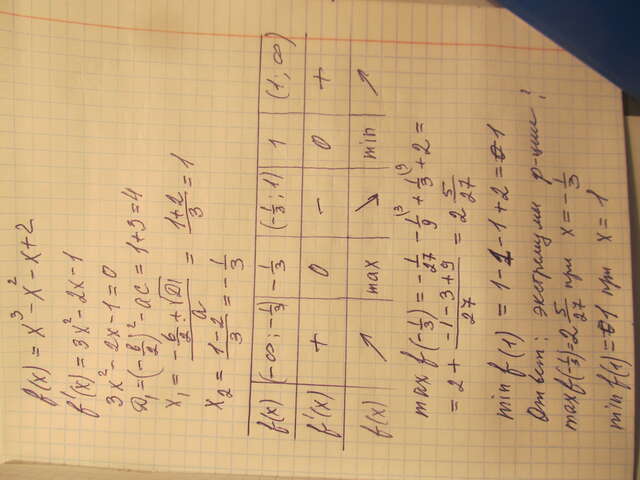 f(x) = x³ - x² - x + 2
f'(x) = 3x² - 2x - 1
3x² - 2x - 1 = 0
D₁ = (-b/2)² - ac = 1+3 = 4
x₁ = (-b/2 + √D₁)/a = (1+2)/3 = 1
x₂ = (1-2)/3 = -1/3
f(x) | (-∞; -1/3) | -1/3 | (-1/3; 1) | 1 | (1; ∞)
f'(x) | + | 0 | - | 0 | +
f(x) | ↗ | max | ↘ | min | ↗
max f(-1/3) = -1/27 - 1/9 (3 + 1/3 (9 + 2 =
= 2 + (-1-3+9)/27 = 2 5/27
min f(1) = 1 - 1 - 1 + 2 = 1
Ответ: экстремумы р-ции:
max f(-1/3) = 2 5/27 при x = -1/3
min f(1) = 1 при x = 1